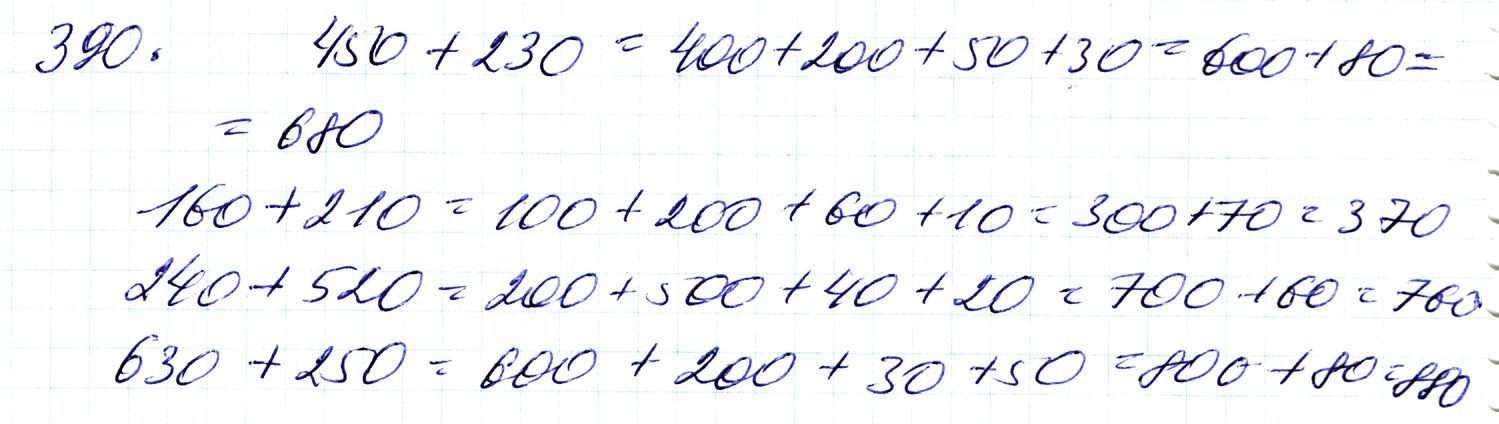 390. 450 + 230 = 400 + 200 + 50 + 30 = 600 + 80 =
= 680
160 + 210 = 100 + 200 + 60 + 10 = 300 + 70 = 370
240 + 520 = 200 + 500 + 40 + 20 = 700 + 60 = 760
630 + 250 = 600 + 200 + 30 + 50 = 800 + 80 = 880